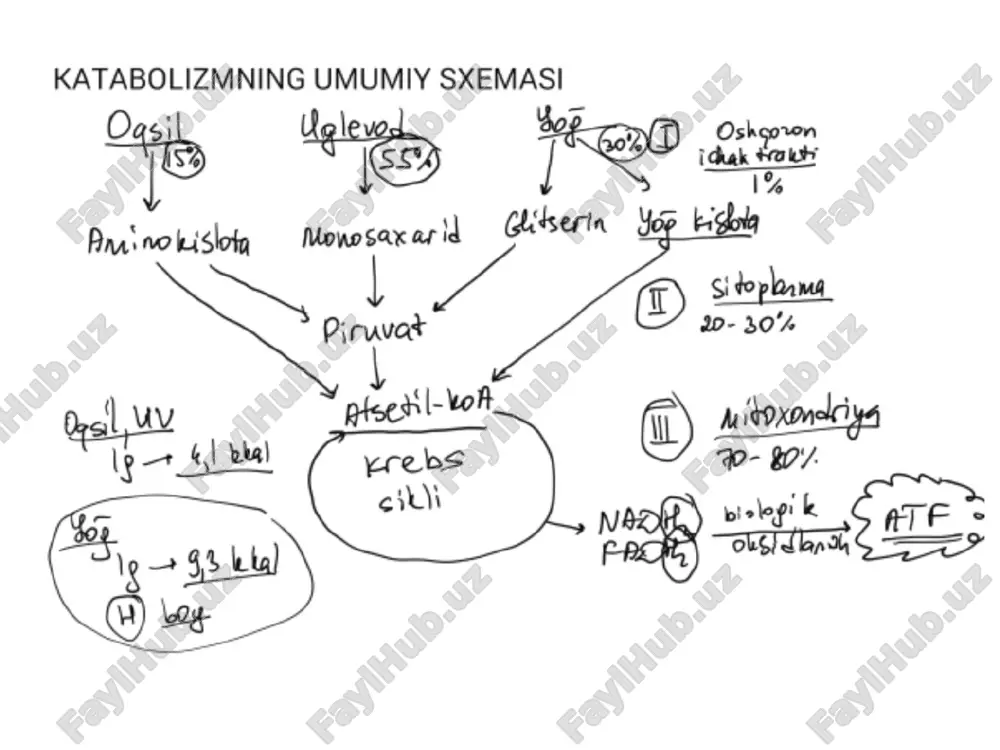 KATABOLIZMNING UMUMIY SXEMASI
Oqsil
15%
Uglevod
55%
Yōg
30%
I
Oshqozon
ichak trakti
1%
Aminokislota
Monosaxarid
Glitserin
Yōg kislota
Piruvat
II
Sitoplazma
20-30%
Atsetil-koA
krebs
sikli
III
Mitoxondriya
70-80%
Oqsil, UV
1g → 4,1 kkal
Yōg
1g → 9,3 kkal
H boy
NADH2
FADH2
biologik
oksidlanish
ATF
FaylHub.uz
FaylHub.uz
FaylHub.uz
FaylHub.uz
FaylHub.uz
FaylHub.uz
FaylHub.uz
FaylHub.uz
FaylHub.uz
FaylHub.uz
FaylHub.uz
FaylHub.uz
FaylHub.uz
FaylHub.uz